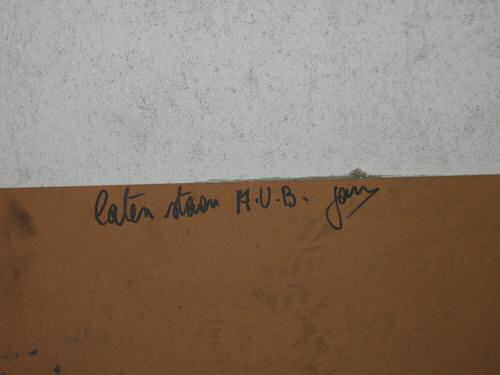 laten staan A.U.B. Jan